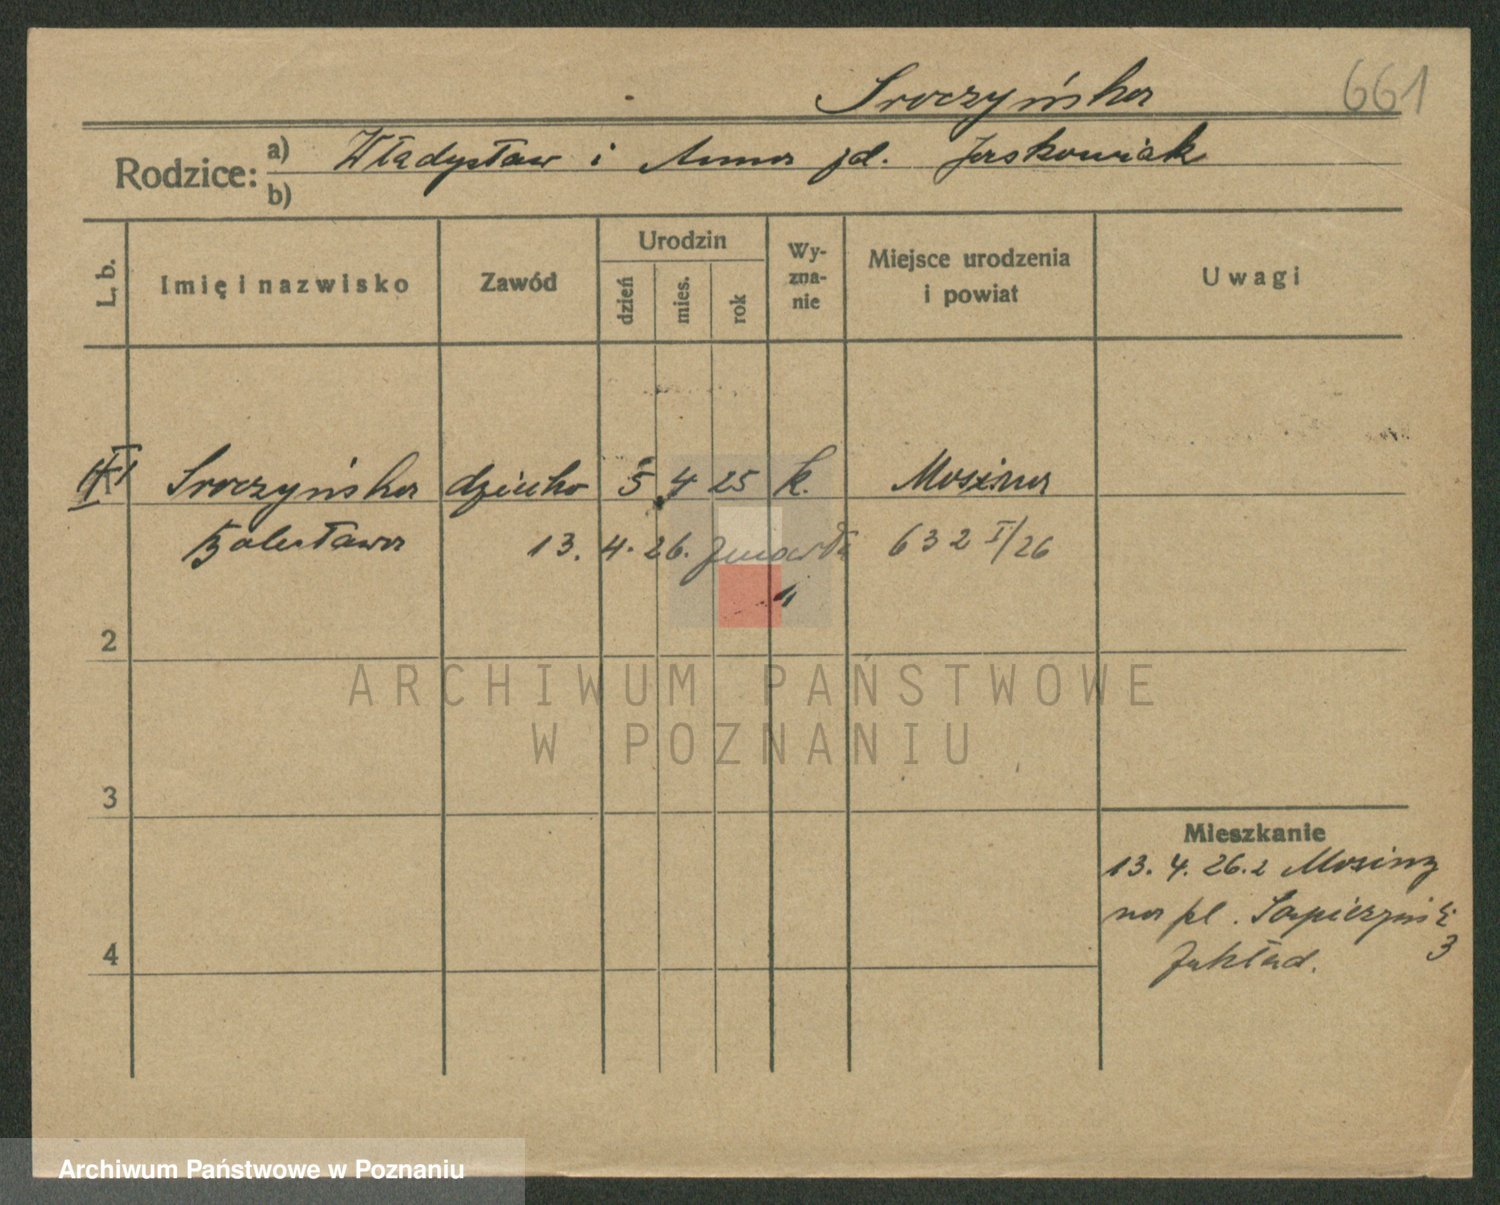 Sroczyńska 661
Rodzice: a) Władysław i Anna zd. Jaskowiak
b)
L. b. Imię i nazwisko Zawód Urodzin dzień mies. rok Wy-zna-nie Miejsce urodzenia i powiat Uwagi
Sroczyńska dziecko 5 4 25 k. Mosina
Bolesława 13. 4. 26. zmarła 632 I/26
2
ARCHIWUM PAŃSTWOWE
W POZNANIU
3
Mieszkanie
13. 4. 26. z Mosiny
na pl. Sapieżyński
3
Zakład.
4
Archiwum Państwowe w Poznaniu